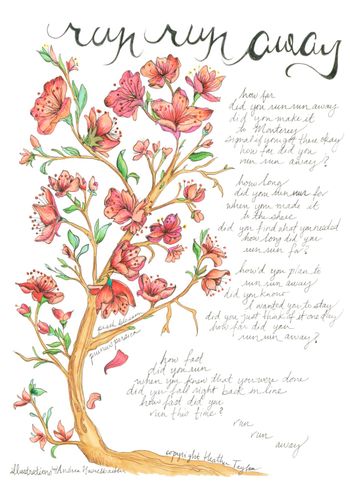 run run away
how far
did you run run away
did you make it
to Monterey
signal if you got there okay
how far did you
run run away?
how long
did you run run for
when you made it
to the shore
did you find what you needed
how long did you
run run for?
how'd you plan to
run run away
did you know
I wanted you to stay
did you just think of it one day
how far did you
run run away?
peach blossom
prunus persica
how fast
did you run
when you knew that you were done
did you fall right back in line
how fast did you
run this time?
run
run
away
copyright Heather Taylor
illustrations by Andrea